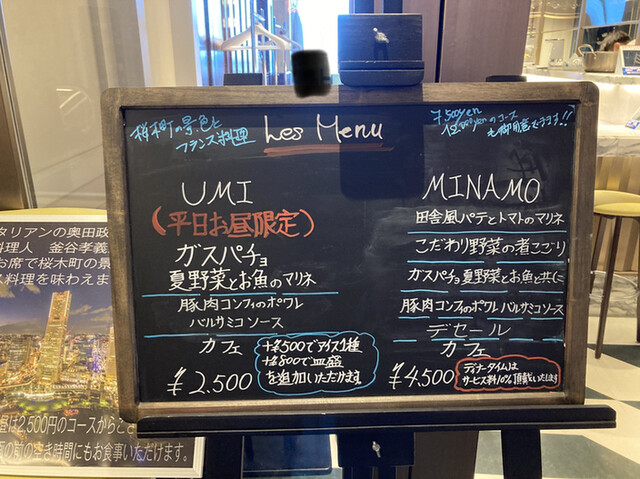 桜木町の景色と
フランス料理
Les Menu
UMI
(平日お昼限定)
ガスパチョ
夏野菜とお魚のマリネ
豚肉コンフィのポワレ
バルサミコソース
カフェ
¥2,500
+¥500でアイス1種
+¥800で皿盛
を追加いただけます
のコース
も御用意できます!!
MINAMO
田舎風パテとトマトのマリネ
こだわり野菜の煮こごり
ガスパチョ夏野菜とお魚と共に
豚肉コンフィのポワレ バルサミコソース
デセール
カフェ
¥4,500
ディナータイムは
サービス料10%頂戴いたします
タリアンの奥田政
料理人 釜谷孝義
お席で桜木町の景
ス料理を味わえま
昼は2,500円のコースからご
の前の空き時間にもお食事いただけます。